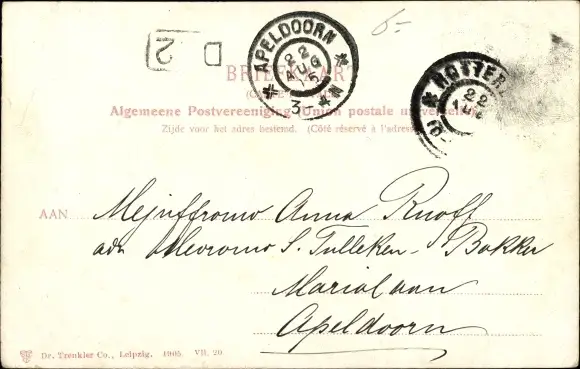 6-
D 2
APELDOORN
22 AUG 05
3-4N
ROTTER
22
BRIEFKAART
Algemeene Postvereeniging (Union postale universelle)
Zijde voor het adres bestemd. (Côté réservé à l'adresse)
AAN Mejuffrouw Anna Knoff
adr. Mevrouw S. Tulleken-Bakker
Mariolaan
Apeldoorn
Dr. Trenkler Co., Leipzig. 1905. VII. 20